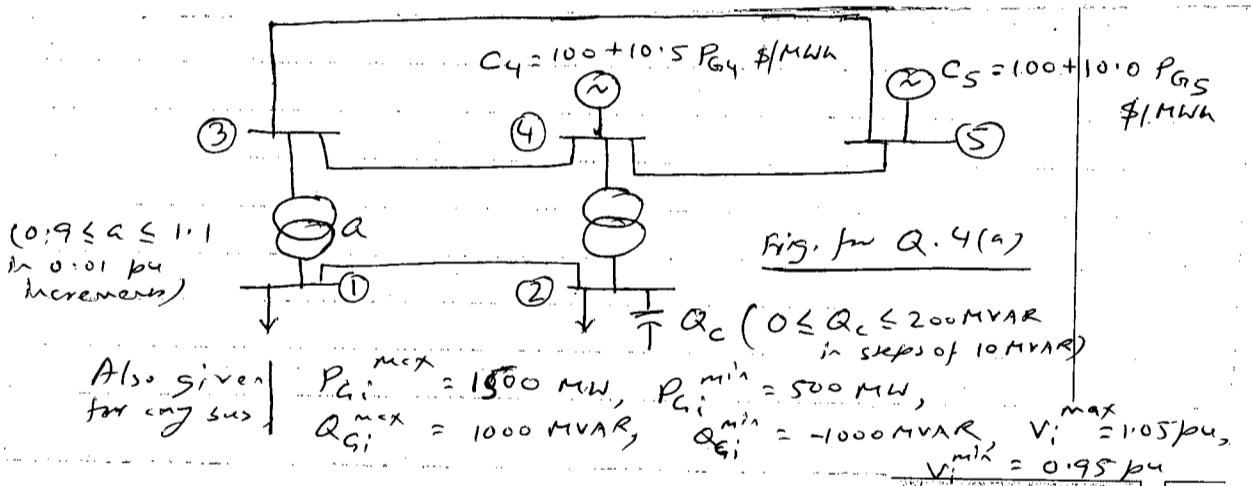 C4 = 100 + 10.5 PG4 $/MWh
C5 = 100 + 10.0 PG5
$/MWh
③
④
⑤
(0.9 ≤ a ≤ 1.1
in 0.01 pu
increments)
a
Fig. for Q.4(a)
①
②
Qc (0 ≤ Qc ≤ 200 MVAR
in steps of 10 MVAR)
Also given
for any bus
PGi^max = 1500 MW, PGi^min = 500 MW,
QGi^max = 1000 MVAR, QGi^min = -1000 MVAR, Vi^max = 1.05 pu,
Vi^min = 0.95 pu